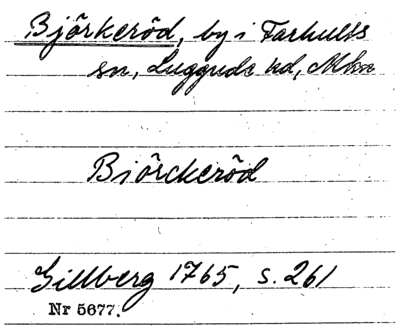 Björkeröd, by i Farhults
sn, Luggude hd, Mlm
Biörckeröd
Gillberg 1765, s. 261
Nr 5677.